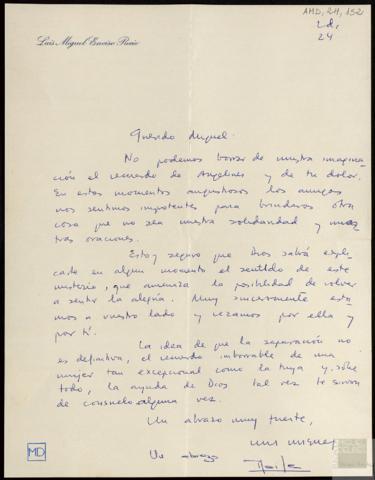 AMD, 24, 152
2d,
24
Luis Miguel Enciso Recio
Querido Miguel:
No podemos borrar de nuestra imagina-
ción el recuerdo de Angelines y de tu dolor.
En estos momentos angustiosos los amigos
nos sentimos impotentes para brindaros otra
cosa que no sea nuestra solidaridad y nues
tras oraciones.
Estoy seguro que Dios sabrá expli-
carte en algún momento el sentido de este
misterio, que amenaza la posibilidad de volver
a sentir la alegría. Muy sinceramente esta-
mos a vuestro lado y rezamos por ella y
por tí.
La idea de que la separación no
es definitiva, el recuerdo imborrable de una
mujer tan excepcional como la tuya y, sobre
todo, la ayuda de Dios tal vez te sirvan
de consuelo alguna vez.
Un abrazo muy fuerte,
Luis Miguel
Un abrazo
MD